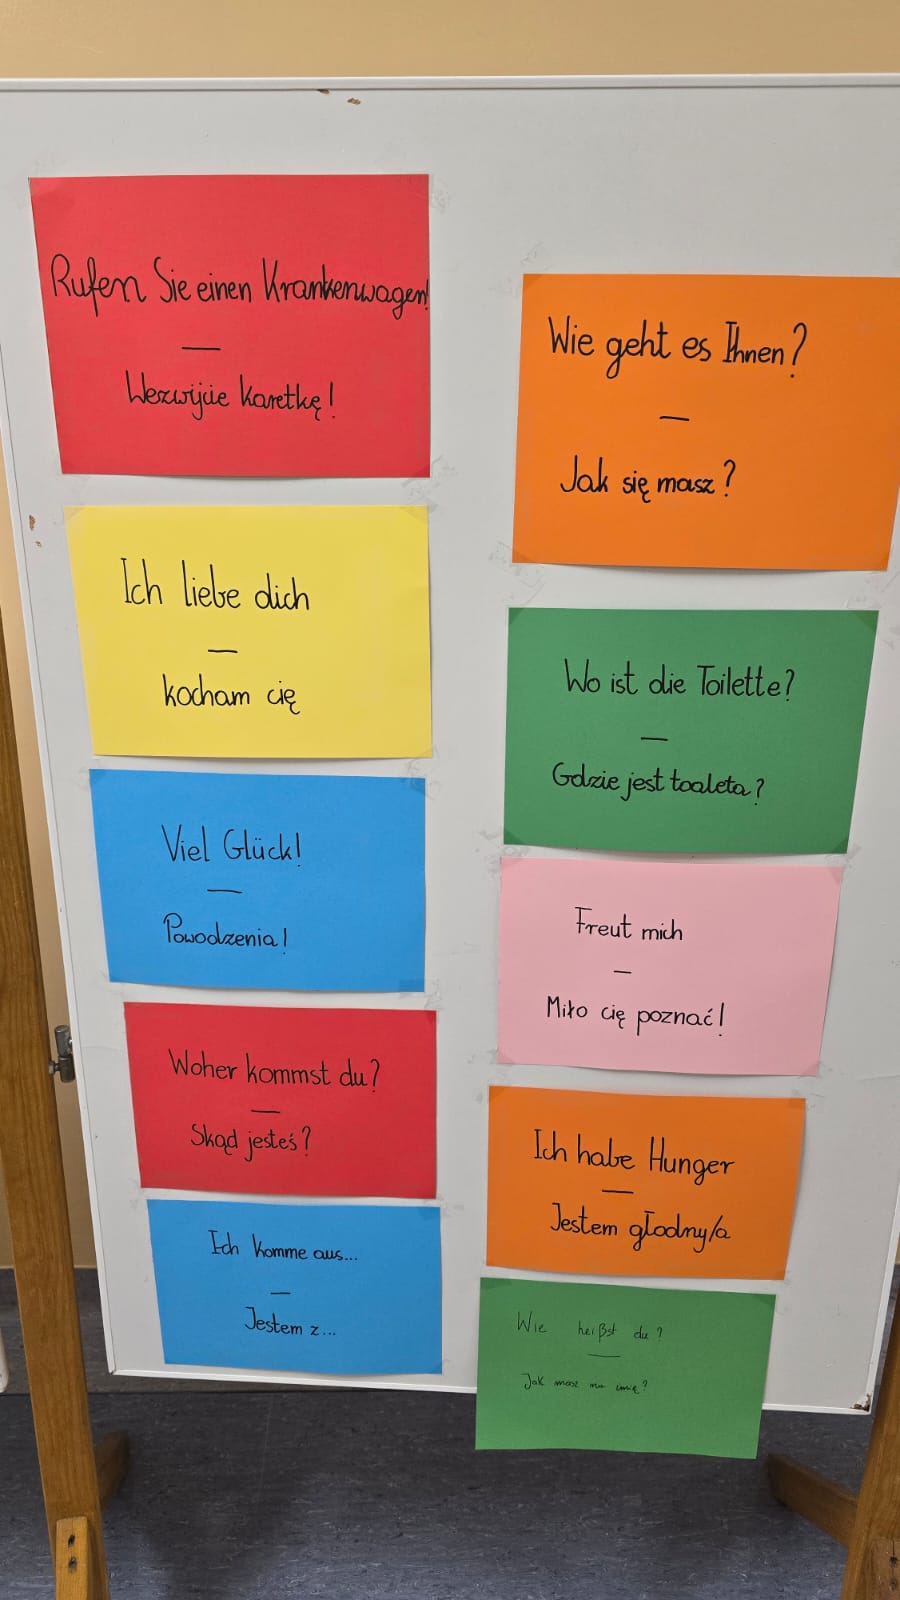 Rufen Sie einen Krankenwagen!
—
Wezwijcie karetkę!
Ich liebe dich
—
kocham cię
Viel Glück!
—
Powodzenia!
Woher kommst du?
—
Skąd jesteś?
Ich komme aus...
—
Jestem z...
Wie geht es Ihnen?
—
Jak się masz?
Wo ist die Toilette?
—
Gdzie jest toaleta?
Freut mich
—
Miło cię poznać!
Ich habe Hunger
—
Jestem głodny/a
Wie heißt du?
—
Jak masz na imię?